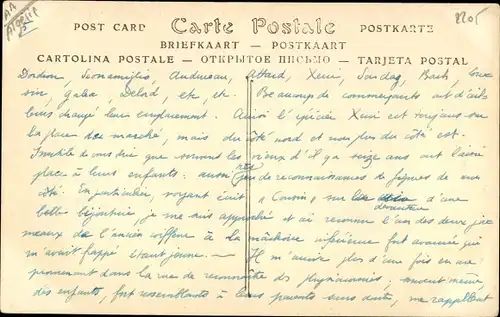 AA
Algérie
5
2205
POST CARD Carte Postale POSTKARTE
BRIEFKAART — POSTKAART
CARTOLINA POSTALE — ОТКРЫТОЕ ПИСЬМО — TARJETA POSTAL
etc, etc. Beaucoup de commerçants ont d'ailleurs
changé leur emplacement. Ainsi l'épicier Xeni est toujours sur
la place du marché, mais du côté nord et non plus du côté est.
Inutile de vous dire que souvent les vieux d'il y a seize ans ont laissé
place à leurs enfants: aussi très peu de reconnaissances de figures de mon
côté. En particulier, voyant écrit "Cousin" sur la devanture d'une
belle bijouterie, je me suis approché et ai reconnu l'un des deux jumeaux
de l'ancien coiffeur à la mâchoire inférieure fort avancée qui
m'avait frappé étant jeune. — Il m'arrive plus d'une fois en me
promenant dans la rue de reconnaître des physionomies; souvent même,
des enfants, fort ressemblants à leurs parents sans doute, me rappellent